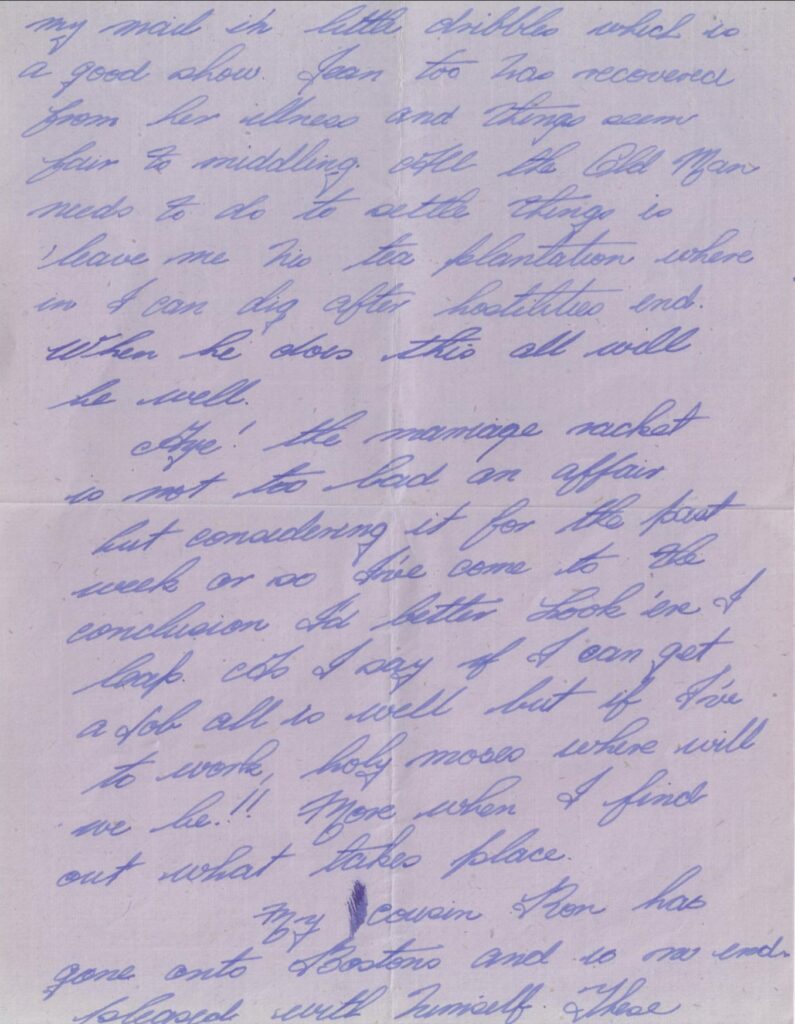 my mail in little dribbles which is
a good show. Jean too has recovered
from her illness and things seem
fair to middling. All the Old Man
needs to do to settle things is
leave me his tea plantation where
in I can dig after hostilities end.
When he does this all will
be well.
Aye! the marriage racket
is not too bad an affair
but considering it for the past
week or so I've come to the
conclusion I'd better look 'ere I
leap. As I say if I can get
a job all is well but if I've
to work, holy moses where will
we be!!! More when I find
out what takes place.
My cousin Ron has
gone onto Bostons and is no end
pleased with himself. These